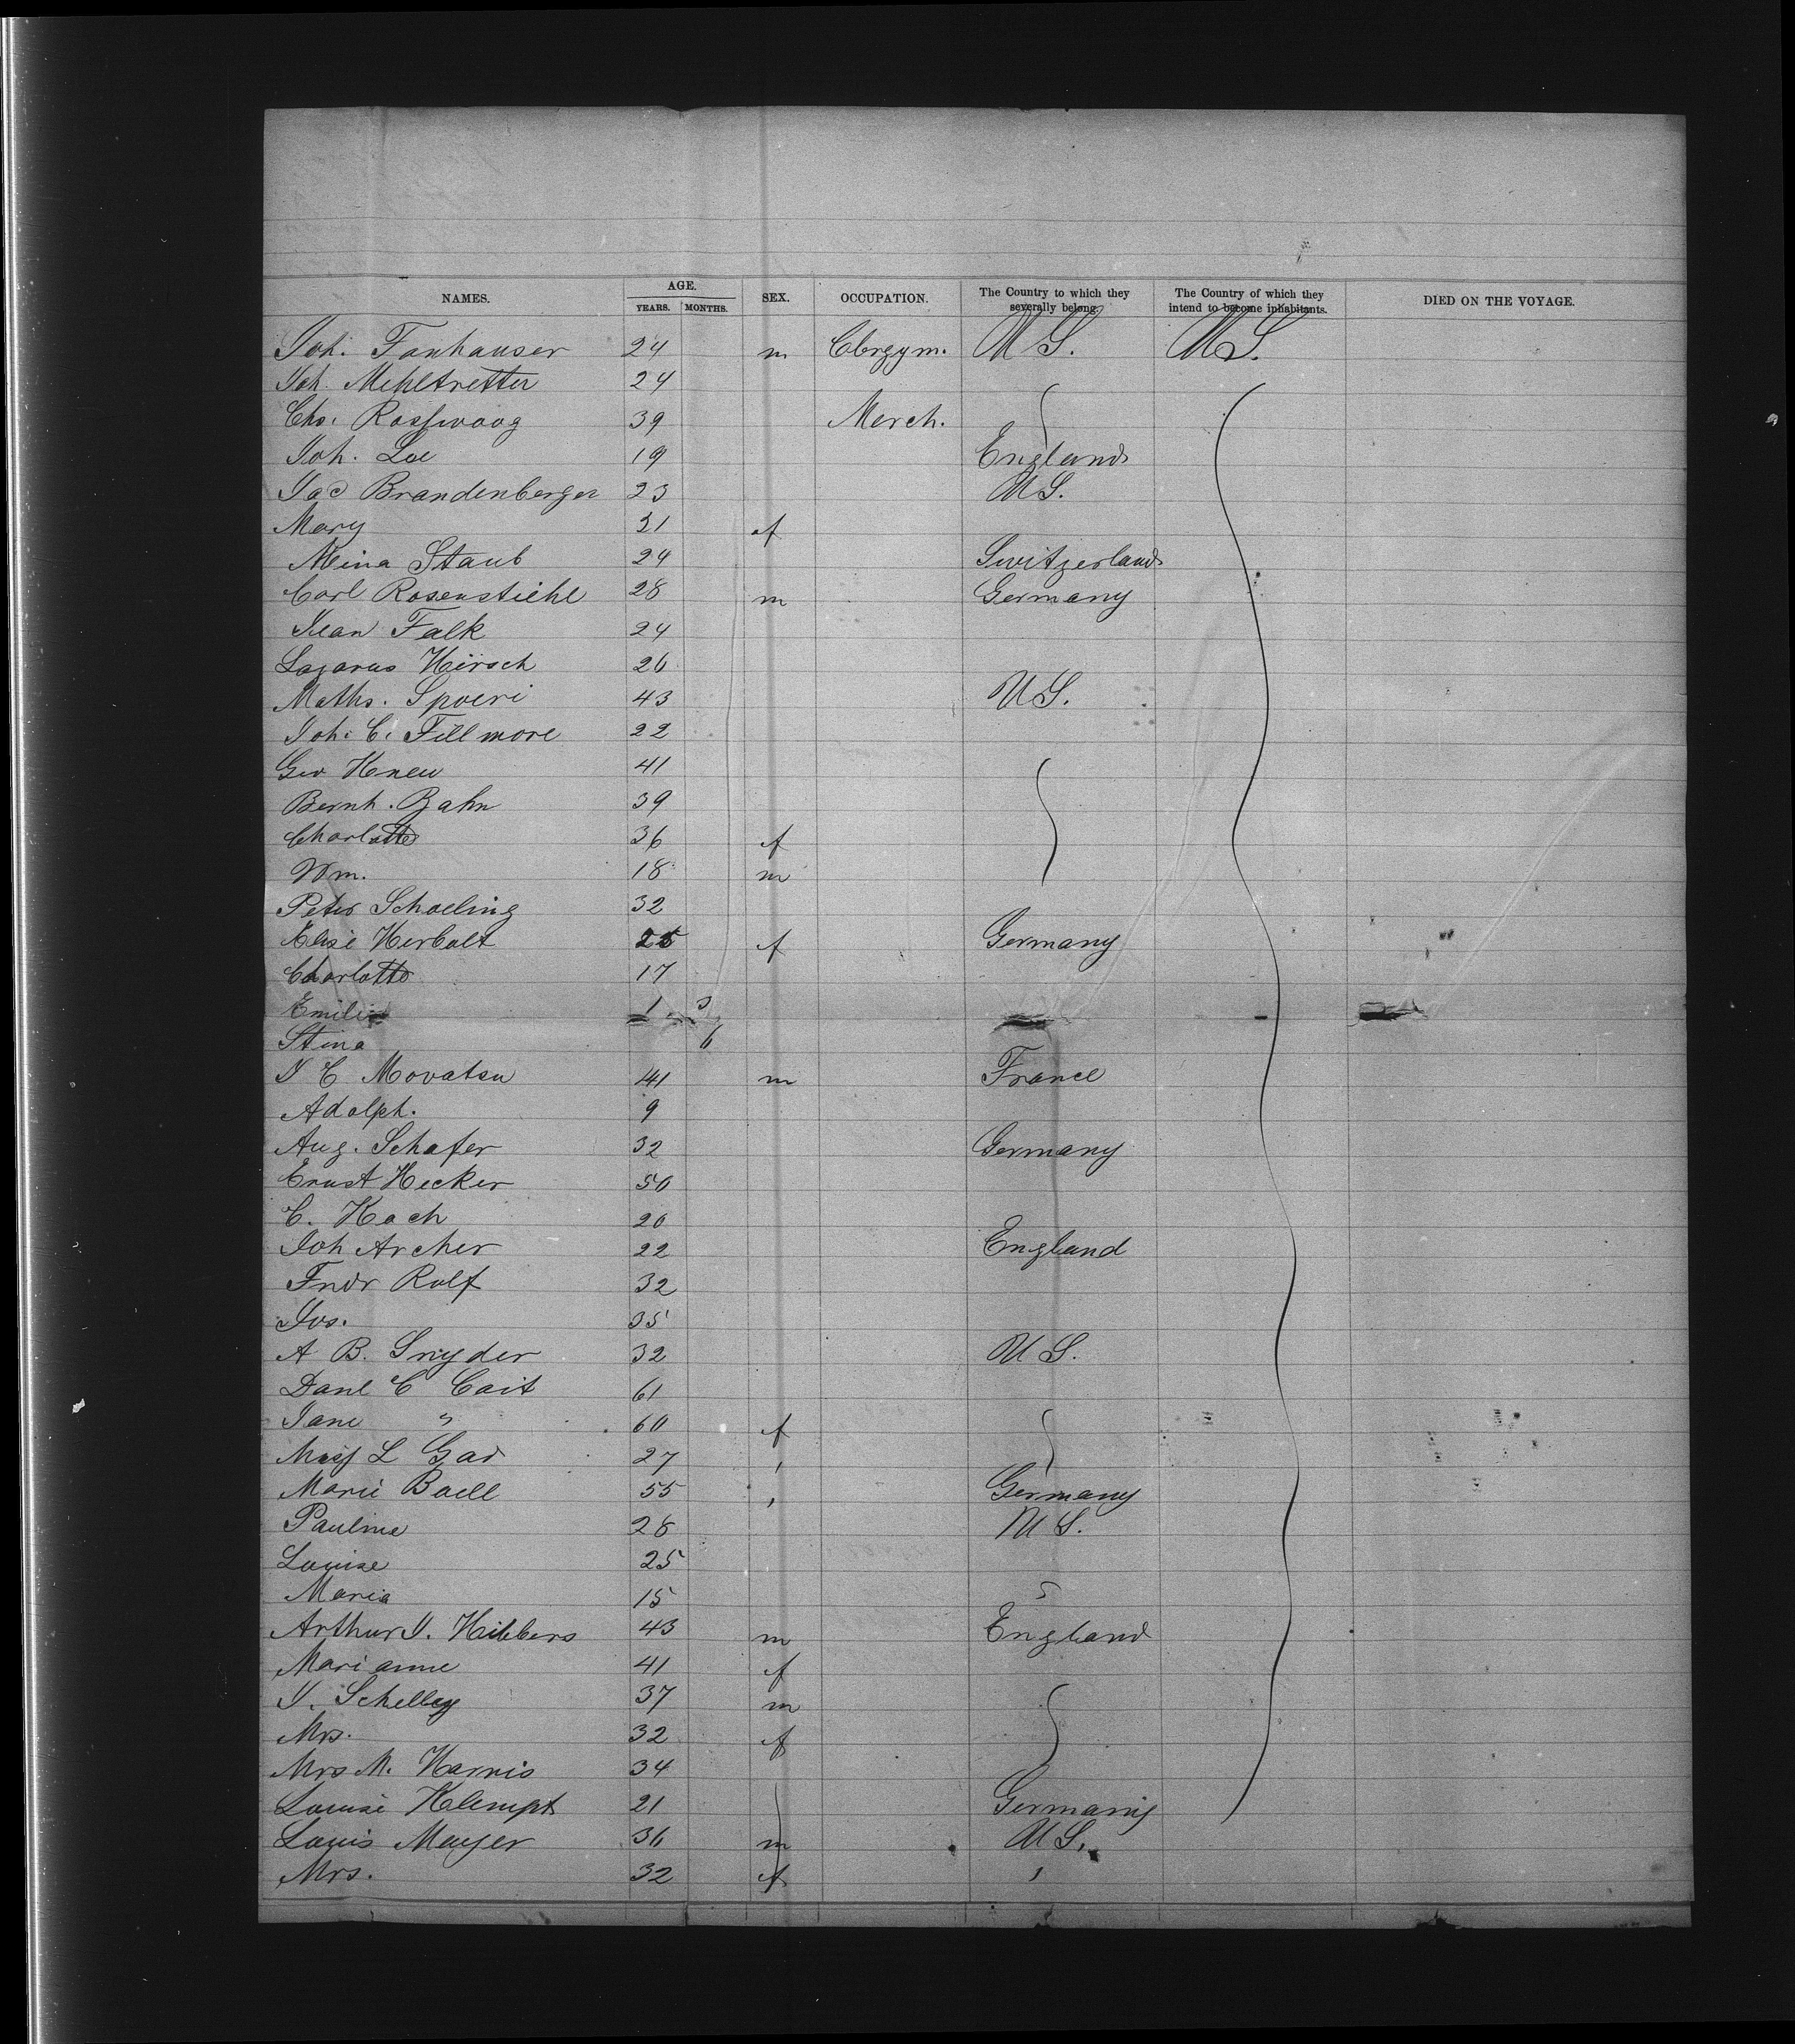 NAMES. AGE. YEARS. MONTHS. SEX. OCCUPATION. The Country to which they severally belong. The Country of which they intend to become inhabitants. DIED ON THE VOYAGE.
Joh. Fanhauser 24 m Clergym. US. US.
Joh. Mehltretter 24
Chs. Rosswoog 39 Merch.
Joh. Loe 19 England
Jac Brandenberger 23 US.
Mary 31 f
Meina Staub 24 Switzerland
Carl Rosenstiehl 28 m Germany
Jean Falk 24
Lazarus Hirsch 26
Maths. Spoeri 43 US.
Joh. C. Fillmore 22
Geo 41
Bernh. Zahn 39
Charlotte 36 f
Wm. 18 m
Peter Schoeling 32
Elise Herbolt 25 f Germany
Charlotte 17
Emilie 1 3
Stina 6
J C Movatsu 41 m France
Adolph. 9
Aug. Schafer 32 Germany
Ernst Hecker 50
C. Koch 20
Joh Archer 22 England
Rolf 32
Jos. 35
A B. Snyder 32 US.
Danl C Cait 61
Jane " 60 f
Miss L Gad 27 "
Marie Baell 55 " Germany
Pauline 28 US.
Louise 25
Maria 15 "
Arthur J. Hibbers 43 m England
Marianne 41 f
J. Schelley 37 m
Mrs. 32 f
Mrs M. Harris 34
Louise Klempt 21 Germany
Louis Mayer 36 m US.
Mrs. 32 f "